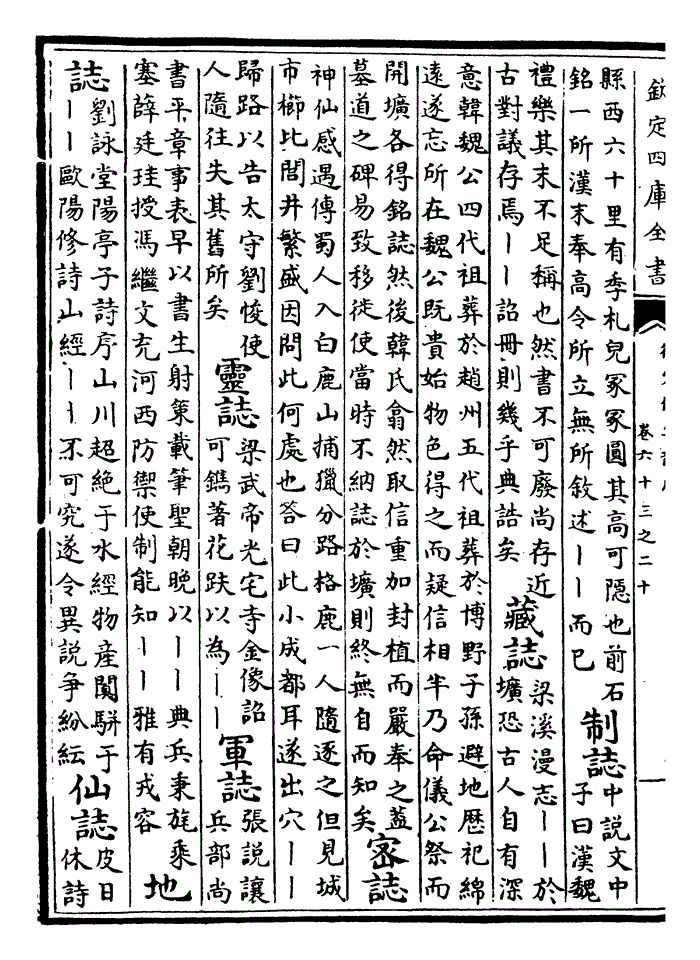 欽定四庫全書
卷六十三之二十
縣西六十里有季札兒冢冢圓其高可隠也前石
銘一所漢末奉高令所立無所敘述丨丨而已
制誌
中說文中
子曰漢魏
禮樂其末不足稱也然書不可廢尚存近
古對議存焉丨丨詔冊則幾乎典誥矣
藏誌
梁溪漫志丨丨於
壙恐古人自有深
意韓魏公四代祖葬於趙州五代祖葬於博野子孫避地歴祀綿
遠遂忘所在魏公既貴始物色得之而疑信相半乃命儀公祭而
開壙各得銘誌然後韓氏翕然取信重加封植而嚴奉之葢
墓道之碑易致移徙使當時不納誌於壙則終無自而知矣
宻誌
神仙感遇傳蜀人入白鹿山捕獵分路格鹿一人隨逐之但見城
市櫛比閭井繁盛因問此何處也答曰此小成都耳遂出穴丨丨
歸路以告太守劉悛使
人隨往失其舊所矣
靈誌
梁武帝光宅寺金像詔
可鐫著花趺以為丨丨
軍誌
張説讓
兵部尚
書平章事表早以書生射策載筆聖朝晚以丨丨典兵秉旄乘
塞薛廷珪授馮繼文充河西防禦使制能知丨丨雅有戎容
地
誌
劉詠堂陽亭子詩序山川超絶于水經物產闐駢于
丨丨歐陽修詩山經丨丨不可究遂令異説争紛紜
仙誌
皮日
休詩